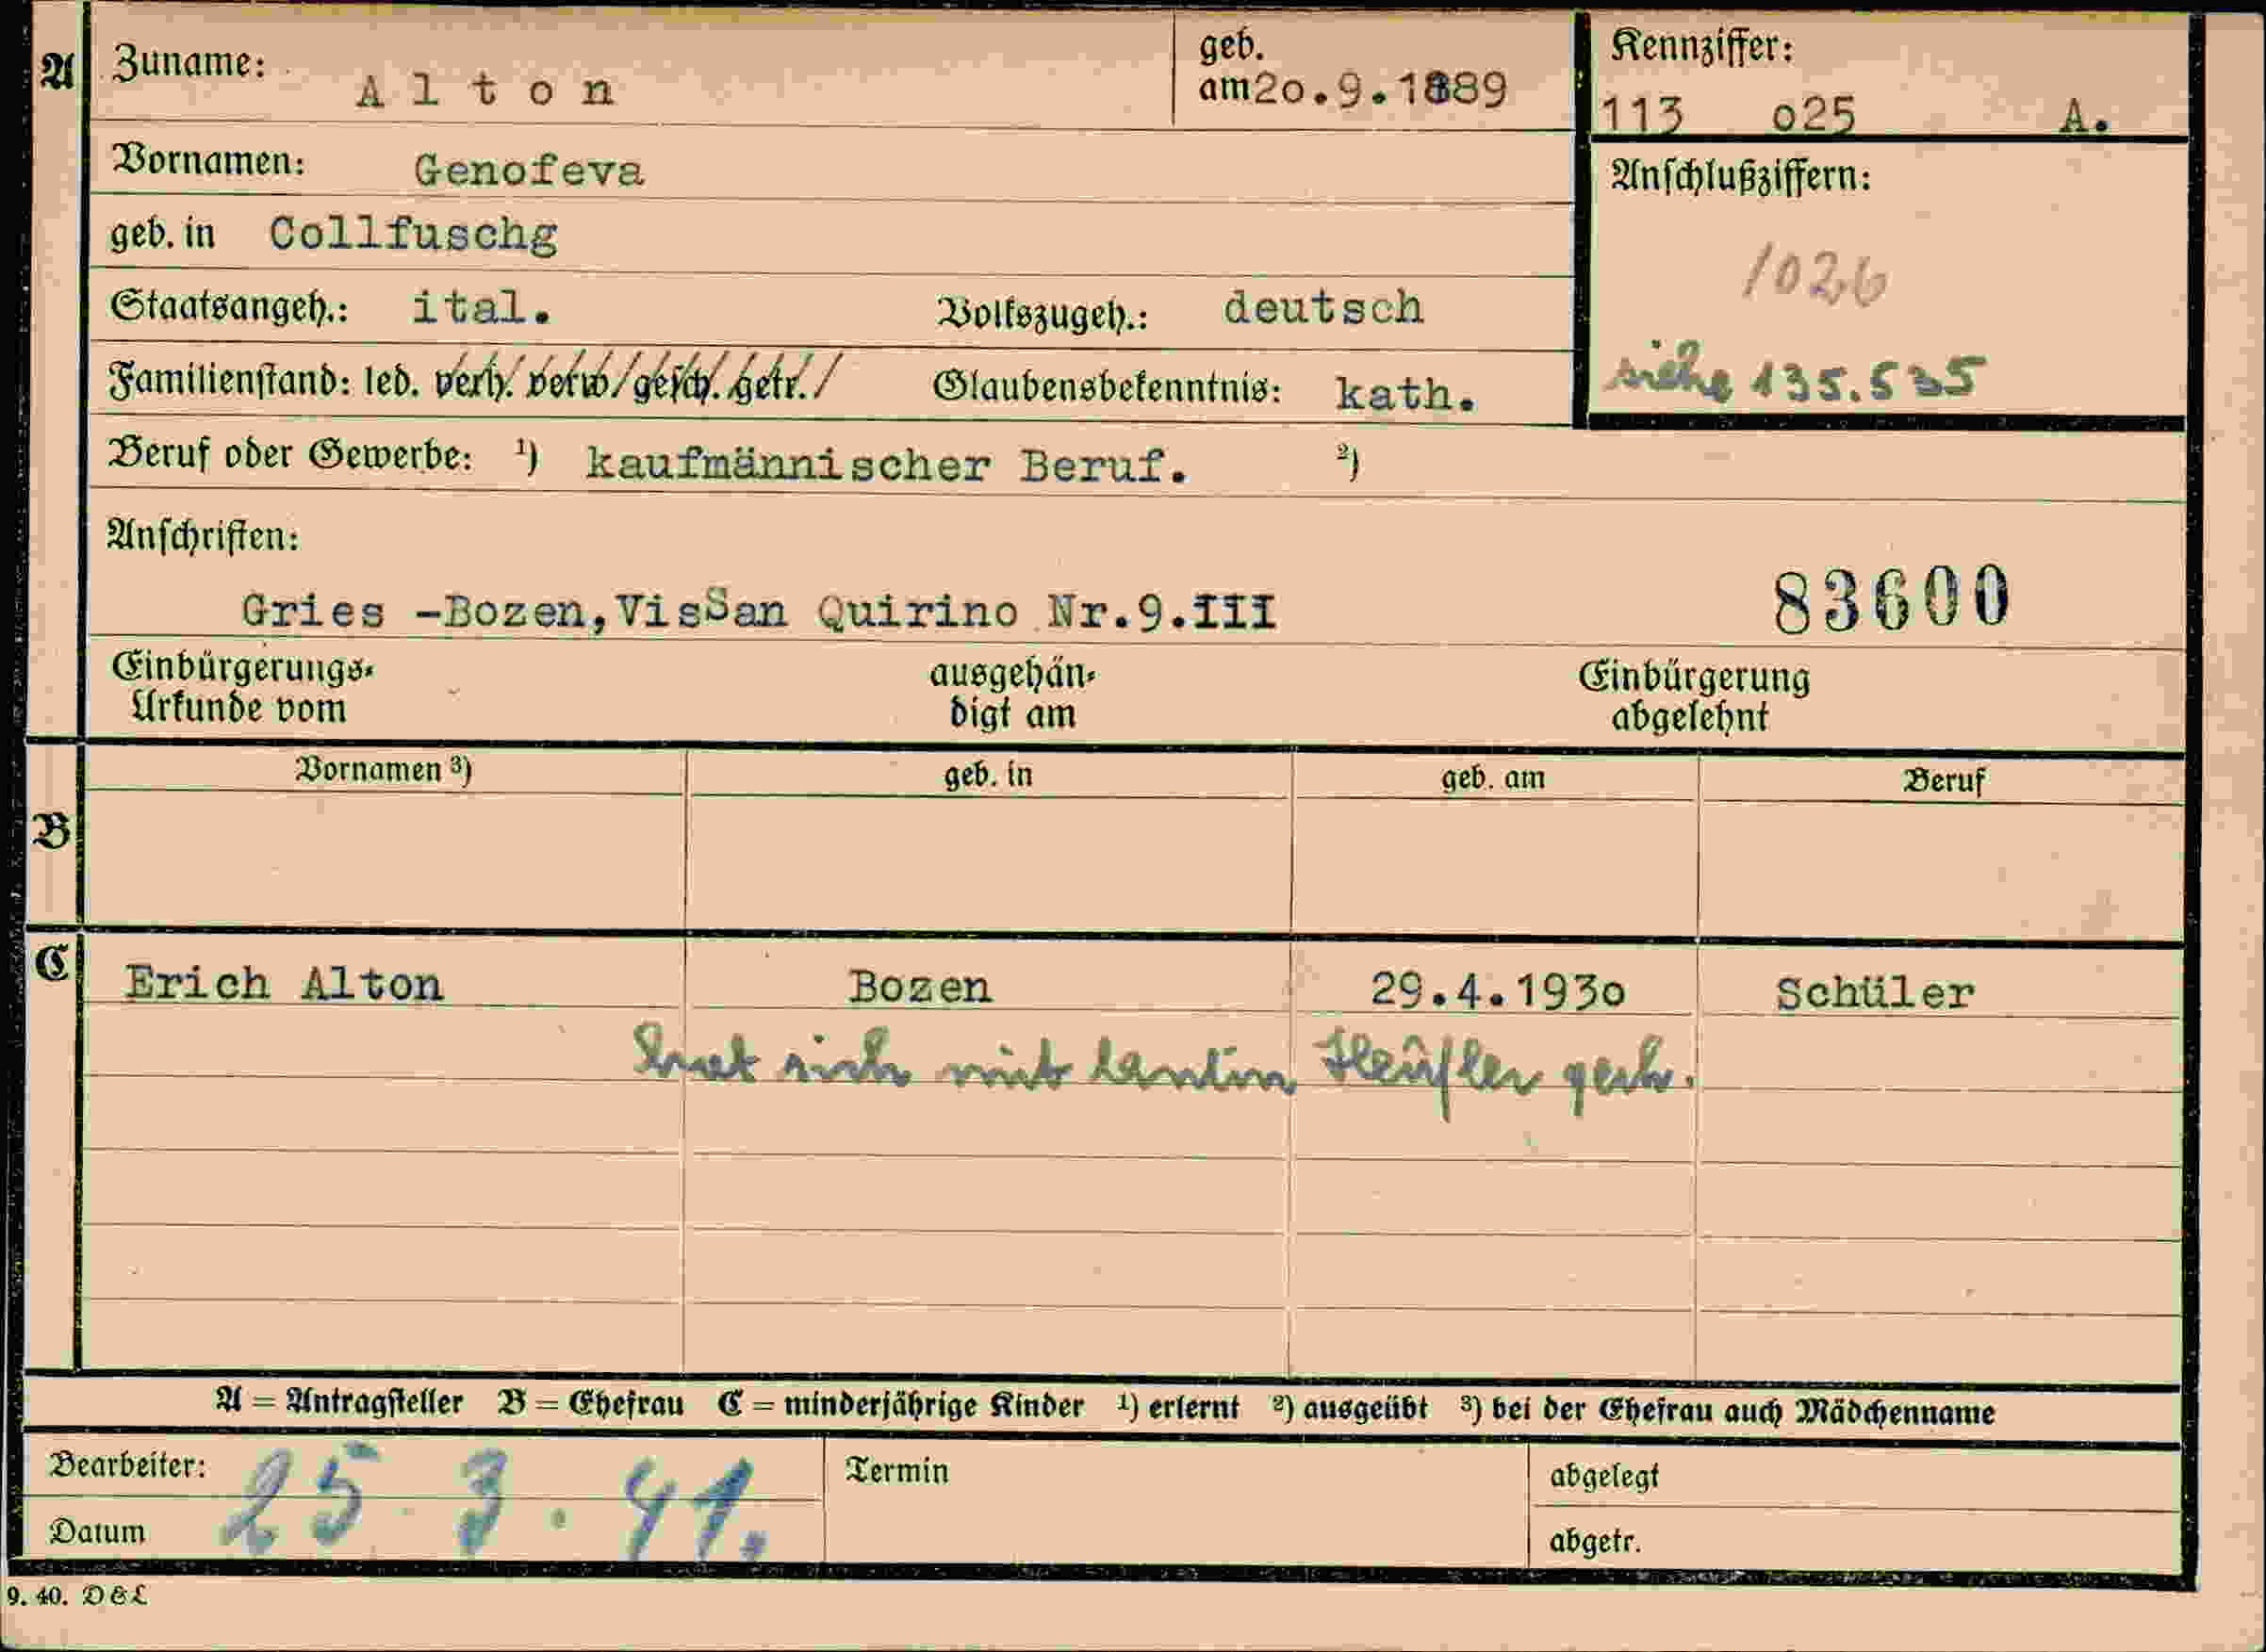 A Zuname: Alton geb. am 20.9.1889 Kennziffer: 113 o25 A.
Vornamen: Genofeva Anschlußziffern:
geb. in Collfuschg 1026
Staatsangeh.: ital. Volkszugeh.: deutsch
Familienstand: led. verh. verw. gesch. getr. Glaubensbekenntnis: kath. siehe 135.535
Beruf oder Gewerbe: ¹) kaufmännischer Beruf. ²)
Anschriften:
Gries -Bozen,VisSan Quirino Nr.9.III 83600
Einbürgerungs- ausgehän- Einbürgerung
Urkunde vom digt am abgelehnt
B Vornamen ³) geb. in geb. am Beruf
C Erich Alton Bozen 29.4.193o Schüler
hat sich mit
A = Antragsteller B = Ehefrau C = minderjährige Kinder ¹) erlernt ²) ausgeübt ³) bei der Ehefrau auch Mädchenname
Bearbeiter: Termin abgelegt
25.3.41.
Datum abgetr.
9. 40. DEL